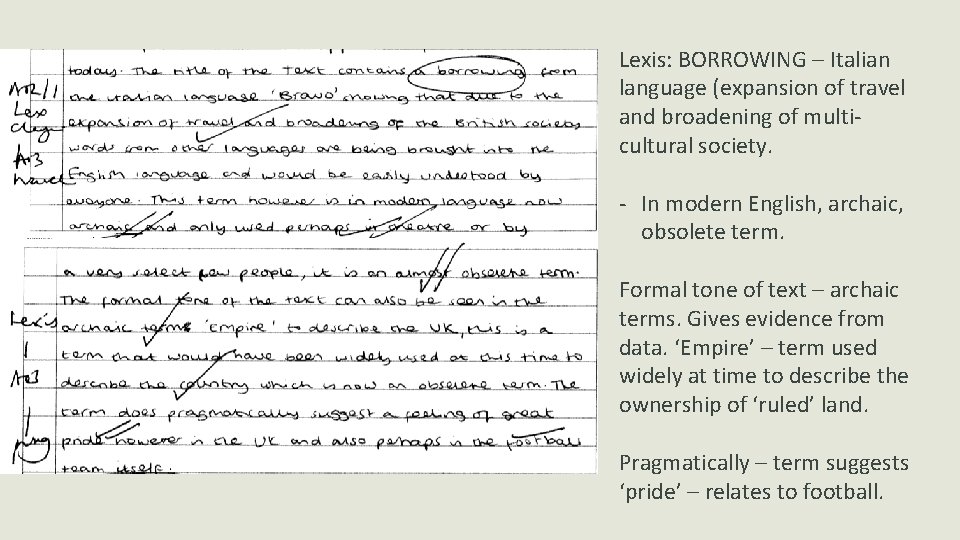 today. The title of the Text contains a borrowing from
the italian language 'Bravo' showing that due to the
expansion of travel and broadening of the British society
words from other languages are being brought into the
English language and would be easily understood by
everyone. This term however is in modern language now
archaic and only used perhaps in theatre or by
a very select few people, it is an almost obselete term.
The formal tone of the text can also be seen in the
archaic terms 'Empire' to describe the UK, this is a
term that would have been widely used at this time to
describe the country which is now an obselete term. The
term does pragmatically suggest a feeling of great
pride however in the UK and also perhaps in the football
team itself.
Lex
AO3
Lexis
AO3
prag
Lexis: BORROWING – Italian
language (expansion of travel
and broadening of multi-
cultural society.
- In modern English, archaic,
obsolete term.
Formal tone of text – archaic
terms. Gives evidence from
data. ‘Empire’ – term used
widely at time to describe the
ownership of ‘ruled’ land.
Pragmatically – term suggests
‘pride’ – relates to football.